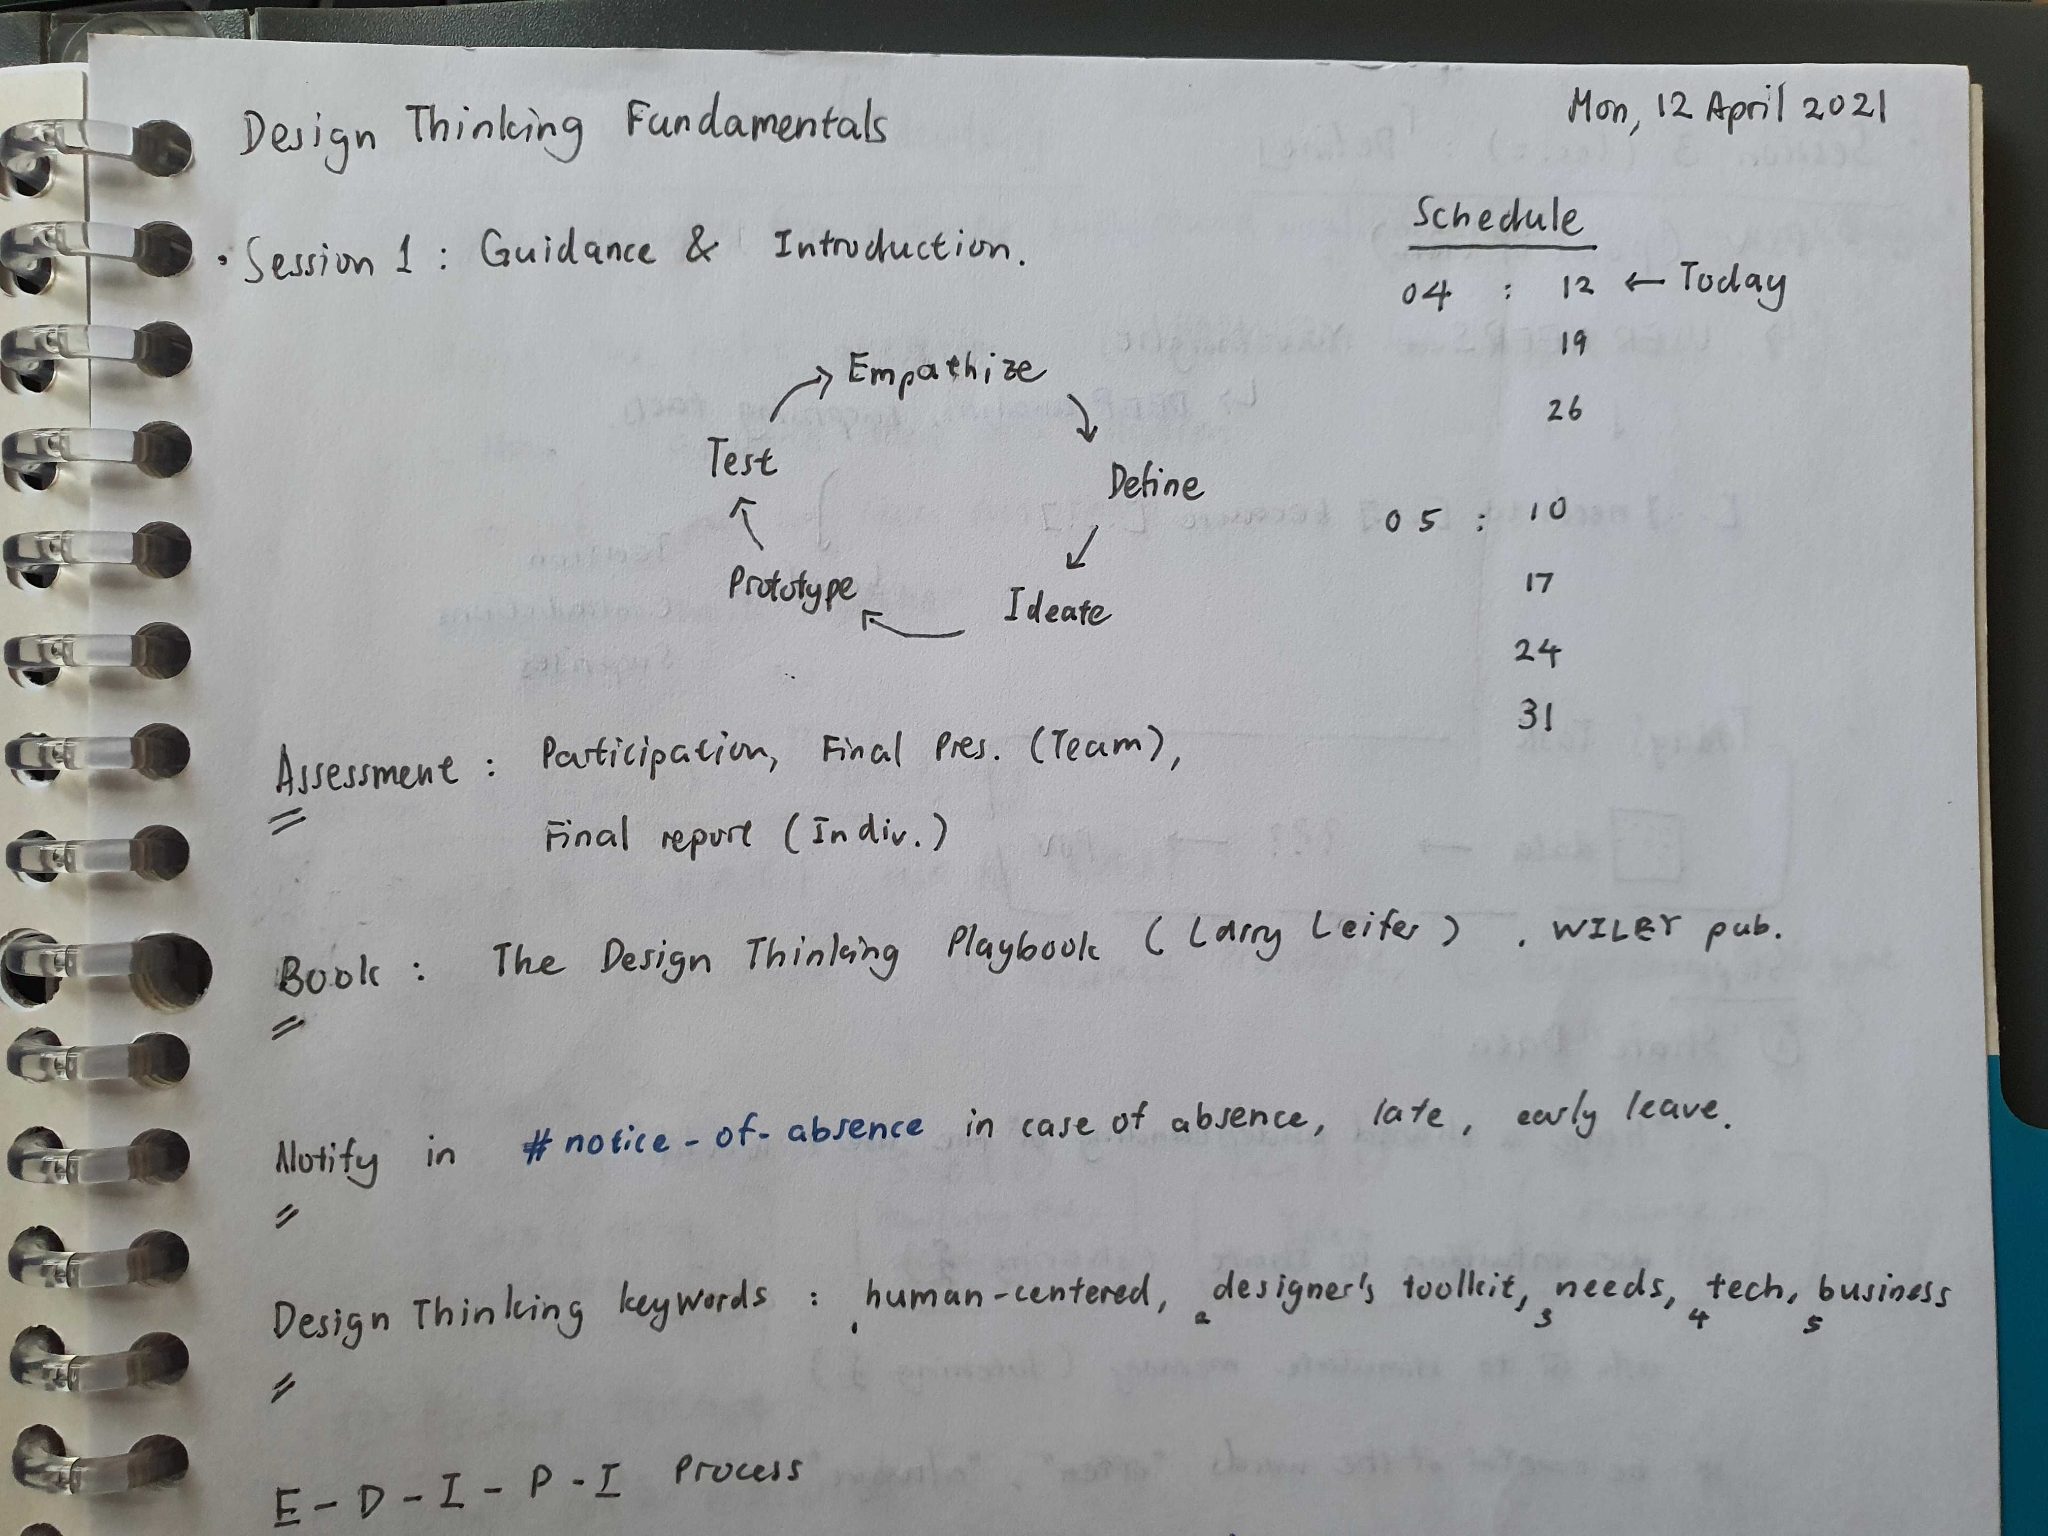 Mon, 12 April 2021
Design Thinking Fundamentals
Schedule
• Session 1 : Guidance & Introduction.
04 : 12 ← Today
19
26
05 : 10
17
24
31
Empathize
Define
Ideate
Prototype
Test
Assessment : Participation, Final Pres. (Team),
Final report (Indiv.)
Book : The Design Thinking Playbook (Larry Leifer) . WILEY pub.
Notify in #notice-of-absence in case of absence, late, early leave.
Design Thinking keywords : 1 human-centered, 2 designer's toolkit, 3 needs, 4 tech, 5 business
E - D - I - P - I Process